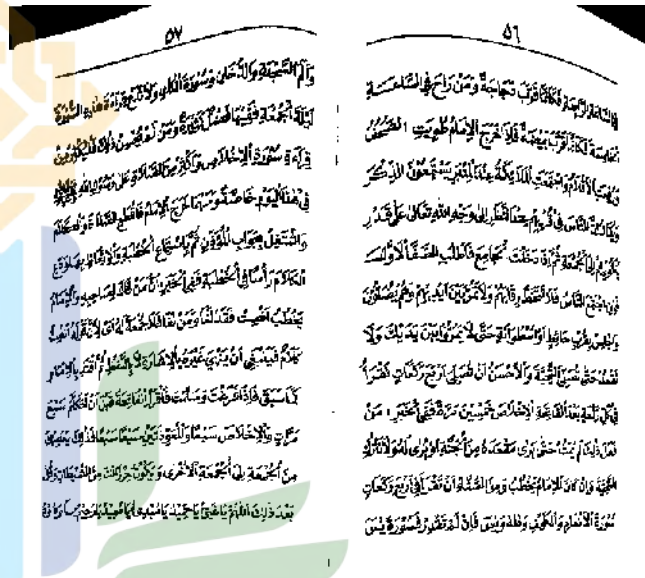 ٥٦
فِي السَّاعَةِ الرَّابِعَةِ فَكَأَنَّمَا قَرَّبَ دَجَاجَةً وَمَنْ رَاحَ فِي السَّاعَةِ
الْخَامِسَةِ فَكَأَنَّمَا قَرَّبَ بَيْضَةً فَإِذَا خَرَجَ الْإِمَامُ طُوِيَتِ الصُّحُفُ
وَرُفِعَتِ الْأَقْلَامُ وَاجْتَمَعَتِ الْمَلَائِكَةُ عِنْدَ الْمِنْبَرِ يَسْتَمِعُونَ الذِّكْرَ
وَيُقَالُ إِنَّ النَّاسَ فِي قُرْبِهِمْ عِنْدَ النَّظَرِ إِلَى وَجْهِ اللهِ تَعَالَى عَلَى قَدْرِ
بُكُورِهِمْ إِلَى الْجُمُعَةِ ثُمَّ إِذَا دَخَلْتَ الْجَامِعَ فَاطْلُبِ الصَّفَّ الْأَوَّلَ
فَإِنِ اجْتَمَعَ النَّاسُ فَلَا تَتَخَطَّ رِقَابَهُمْ وَلَا تَمُرَّ بَيْنَ أَيْدِيهِمْ وَهُمْ يُصَلُّونَ
وَاجْلِسْ بِقُرْبِ حَائِطٍ أَوْ أُسْطُوَانَةٍ حَتَّى لَا يَمُرُّوا بَيْنَ يَدَيْكَ وَلَا
تَقْعُدْ حَتَّى تُصَلِّيَ التَّحِيَّةَ وَالْأَحْسَنُ أَنْ تُصَلِّيَ أَرْبَعَ رَكَعَاتٍ تَقْرَأُ
فِي كُلِّ رَكْعَةٍ بَعْدَ الْفَاتِحَةِ الْإِخْلَاصَ خَمْسِينَ مَرَّةً فَفِي الْخَبَرِ: مَنْ
فَعَلَ ذٰلِكَ لَمْ يَمُتْ حَتَّى يَرَى مَقْعَدَهُ مِنَ الْجَنَّةِ أَوْ يُرَى لَهُ وَلَا تَتْرُكِ
التَّحِيَّةَ وَإِنْ كَانَ الْإِمَامُ يَخْطُبُ وَمِنَ السُّنَّةِ أَنْ تَقْرَأَ فِي أَرْبَعِ رَكَعَاتٍ
سُورَةَ الْأَنْعَامِ وَالْكَهْفِ وَطٰهٰ وَيٰسٓ فَإِنْ لَمْ تَقْدِرْ فَسُورَةَ يٰسٓ
٥٧
وَالٓمٓ السَّجْدَةِ وَالدُّخَانِ وَسُورَةَ الْمُلْكِ وَلَا تَدَعْ قِرَاءَةَ هٰذِهِ السُّورَةِ
لَيْلَةَ الْجُمُعَةِ فَفِيهَا فَضْلٌ كَثِيرٌ وَمَنْ لَمْ يُحْسِنْ ذٰلِكَ فَلْيُكْثِرْ مِنْ
قِرَاءَةِ سُورَةِ الْإِخْلَاصِ وَأَكْثِرْ مِنَ الصَّلَاةِ عَلَى رَسُولِ اللهِ
فِي هٰذَا الْيَوْمِ خَاصَّةً وَمَهْمَا خَرَجَ الْإِمَامُ فَاقْطَعِ الصَّلَاةَ وَالْكَلَامَ
وَاشْتَغِلْ بِجَوَابِ الْمُؤَذِّنِ ثُمَّ بِاسْتِمَاعِ الْخُطْبَةِ وَالْاِتِّعَاظِ بِهَا وَدَعِ
الْكَلَامَ رَأْسًا فِي الْخُطْبَةِ فَفِي الْخَبَرِ: أَنَّ مَنْ قَالَ لِصَاحِبِهِ وَالْإِمَامُ
يَخْطُبُ أَنْصِتْ فَقَدْ لَغَا وَمَنْ لَغَا فَلَا جُمُعَةَ لَهُ أَيْ لِأَنَّ قَوْلَهُ أَنْصِتْ
كَلَامٌ فَيَنْبَغِي أَنْ يَنْهَى غَيْرَهُ بِالْإِشَارَةِ لَا بِاللَّفْظِ ثُمَّ اقْتَدِ بِالْإِمَامِ
كَمَا سَبَقَ فَإِذَا فَرَغْتَ وَسَلَّمْتَ فَاقْرَأِ الْفَاتِحَةَ قَبْلَ أَنْ تَتَكَلَّمَ سَبْعَ
مَرَّاتٍ وَالْإِخْلَاصَ سَبْعًا وَالْمُعَوِّذَتَيْنِ سَبْعًا سَبْعًا فَذٰلِكَ يَعْصِمُكَ
مِنَ الْجُمُعَةِ إِلَى الْجُمُعَةِ الْأُخْرَى وَيَكُونُ حِرْزًا لَكَ مِنَ الشَّيْطَانِ وَقُلْ
بَعْدَ ذٰلِكَ اللّٰهُمَّ يَا غَنِيُّ يَا حَمِيدُ يَا مُبْدِئُ يَا مُعِيدُ يَا رَحِيمُ يَا وَدُودُ